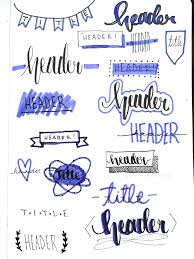 TITLE
header
HEADER!
HEADER
title
header
HEADER
HEADER
header
HEADER!
HEADER
header
Title
header
T·I·T·L·E
title
HEADER
header